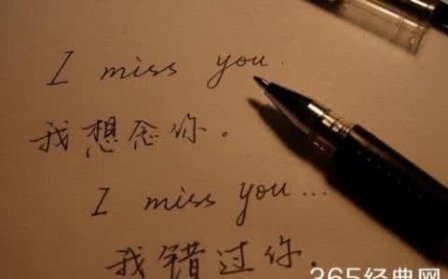 I miss you.
我想念你。
I miss you...
我错过你。
365经典网